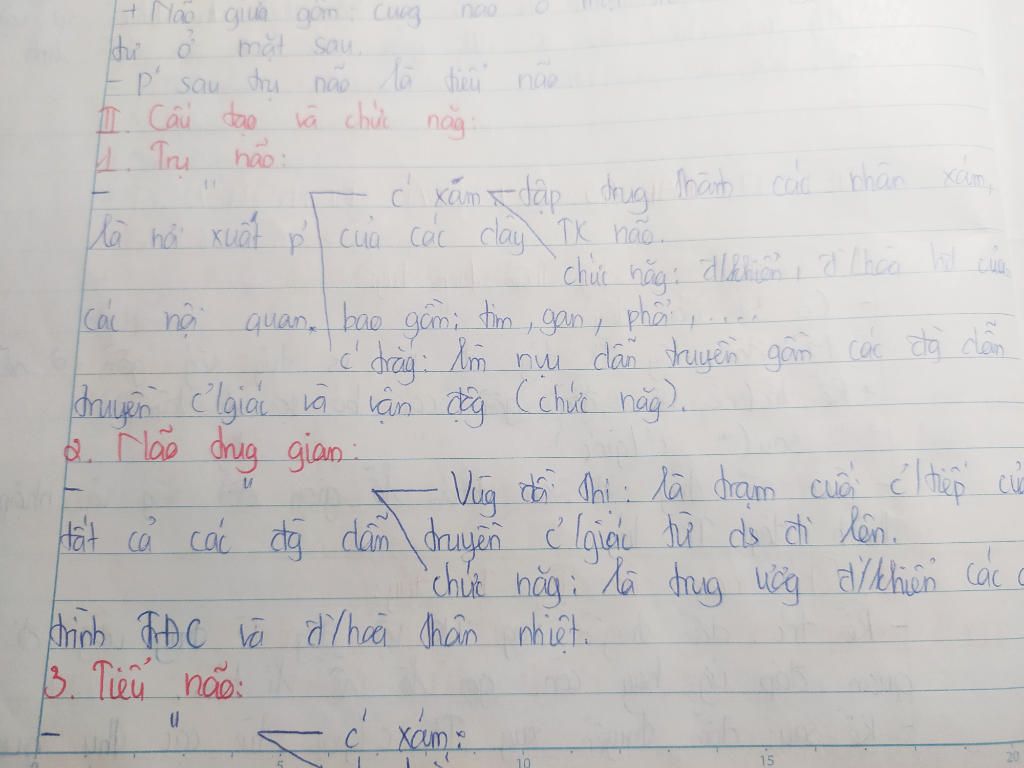 + Não giữa gồm: cuống não ở mặt
tư ở mặt sau.
- P' sau trụ não là tiểu não
II. Cấu tạo và chức năg:
1. Trụ não:
- " C' xám tập trug thành các nhân xám,
là nơi xuất p' của các dây TK não.
chức năg: đ/khiển, đ/hoà hđ của
các nội quan. bao gồm: tim, gan, phổi, ....
C' trắg: làm nvụ dẫn truyền gồm các đg dẫn
truyền c'/giác và vận độg (chức năg).
2. Não trug gian:
- " Vùg đồi thị: là trạm cuối c'/tiếp củ
tất cả các đg dẫn truyền c'/giác từ ds đi lên.
chức năg: là trug ươg đ'/khiển các
trình TĐC và đ'/hoà thân nhiệt.
3. Tiểu não:
- " C' xám:
5 10 15 20